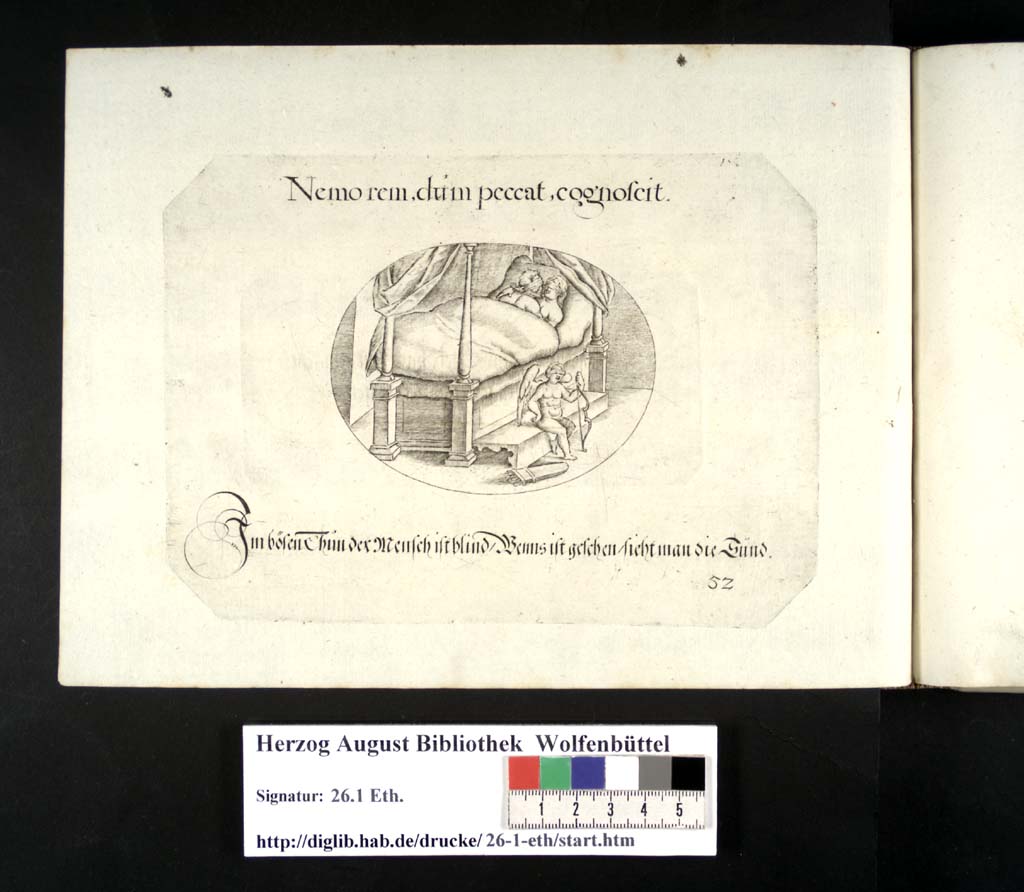 Nemo rem, dùm peccat, cognoſcit.
Im bösen Thun der Mensch ist blind/ Wenns ist geschen/ sieht man die Sünd.
52
Herzog August Bibliothek Wolfenbüttel
Signatur: 26.1 Eth.
1 2 3 4 5
http://diglib.hab.de/drucke/ 26-1-eth/start.htm